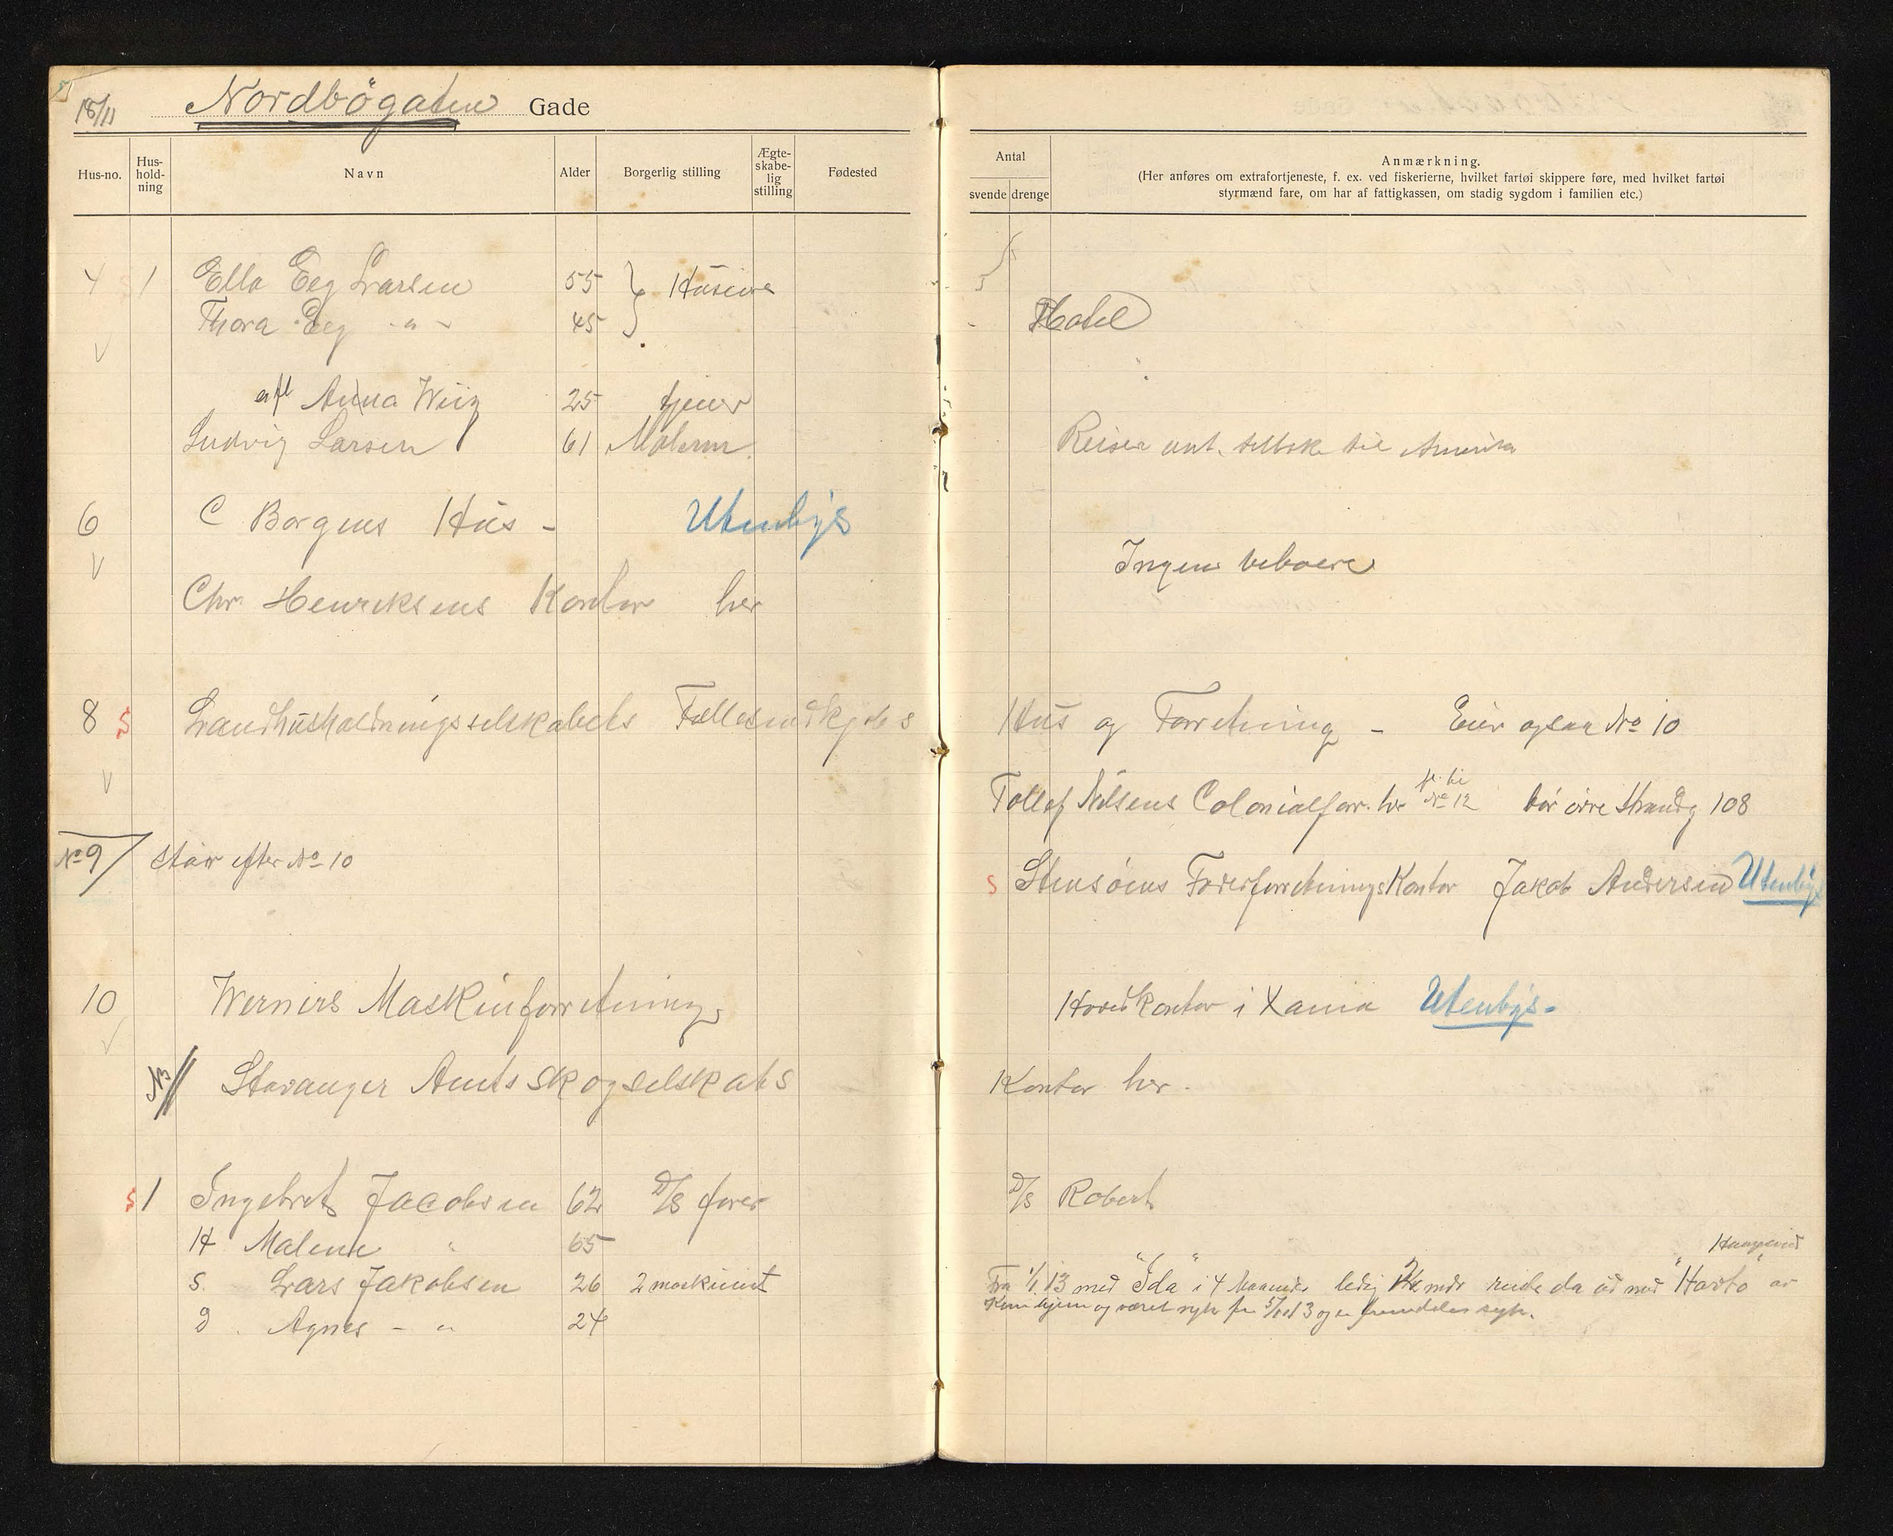 18/11 Nordbögaten Gade
Hus-no.
Hus-
hold-
ning
Navn
Alder
Borgerlig stilling
Ægte-
skabe-
lig
stilling
Fødested
4 1 Ella Eeg Larsen 55 } Huseiere
Thora Eeg -"- 45
Anna Wiig 25 tjener
Ludvig Larsen 61 Malerm.
6 C Borgens Hus - Utenbys
Chr. Henriksens Kontor her
8 S Landhusholdningsselskabets Fællesindkjøbs
No 9 / står efter No 10
10 Werners Maskinforretning
NB // Stavanger Amts skogselskabs
S 1 Ingebret Jacobsen 62 D/S fører
H Malene " 65
S. Lars Jakobsen 26 2 maskinist
D. Agnes - " 24
Antal
svende drenge
Anmærkning.
(Her anføres om extrafortjeneste, f. ex. ved fiskerierne, hvilket fartøi skippere føre, med hvilket fartøi
styrmænd fare, om har af fattigkassen, om stadig sygdom i familien etc.)
Hotel
Reiser ant. tilbake til Amerika
Ingen beboere
Hus og Forretning - Eier ogsaa No 10
Tollef Nilsens Colonialforr. her No 12 bor øvre Strandg 108
S Stensøens Foderforretnings Kontor Jakob Andersen Utenbys
Hovedkontor i Xania Utenbys-
Kontor her.
D/S Robert
Haugesund
Fra 1/1 13 med "Ida" i 4 Maaneder ledig mdr reiste da ud med "Havto" av
Kom hjem og været syk fra 13 og er fremdeles syk.